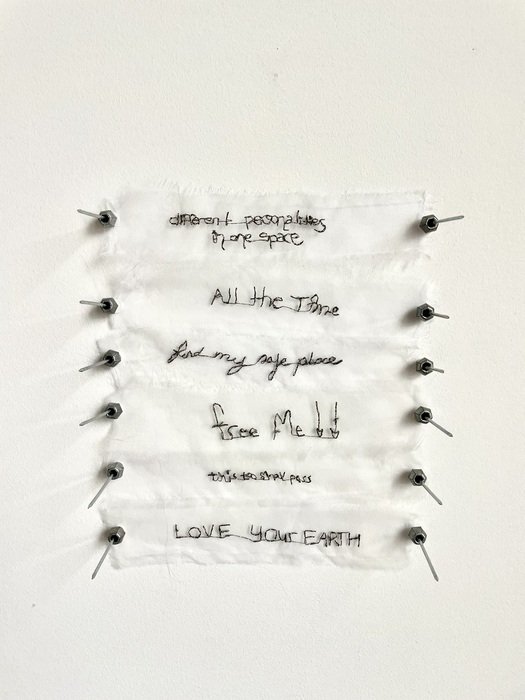 different personalities
in one space
All the Time
find my safe place
free Me
this to shall pass
LOVE YOUR EARTH